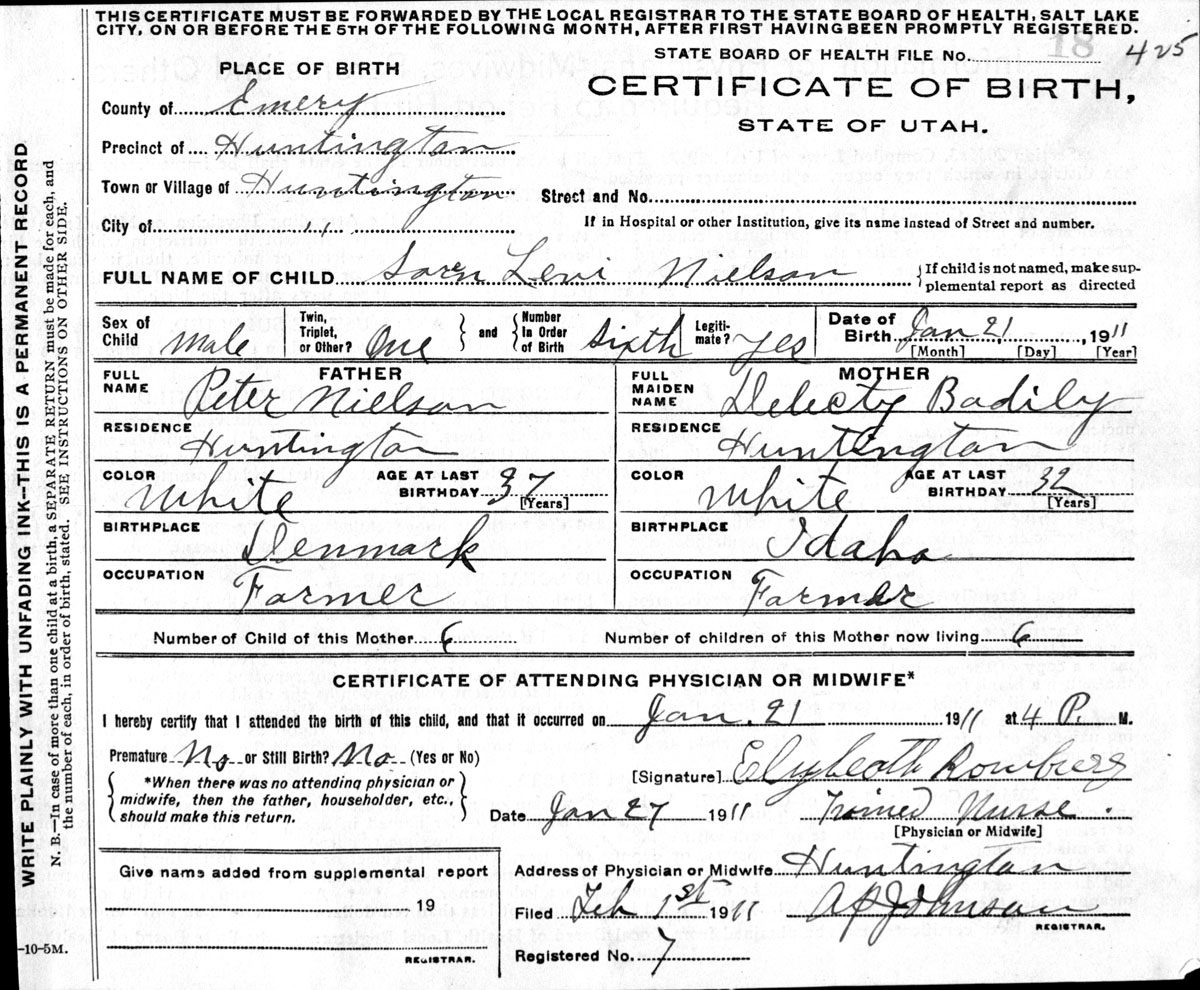 THIS CERTIFICATE MUST BE FORWARDED BY THE LOCAL REGISTRAR TO THE STATE BOARD OF HEALTH, SALT LAKE
CITY, ON OR BEFORE THE 5TH OF THE FOLLOWING MONTH, AFTER FIRST HAVING BEEN PROMPTLY REGISTERED.
STATE BOARD OF HEALTH FILE No. 18 425
PLACE OF BIRTH
CERTIFICATE OF BIRTH,
STATE OF UTAH.
County of Emery
Precinct of Huntington
Town or Village of Huntington
Street and No.
City of " "
If in Hospital or other Institution, give its name instead of Street and number.
FULL NAME OF CHILD Soren Levi Nielson {If child is not named, make sup-
plemental report as directed
Sex of Child Male Twin, Triplet, or Other? One } and { Number In Order of Birth Sixth Legiti-mate? Yes Date of Birth Jan 21, 1911
[Month] [Day] [Year]
FATHER MOTHER
FULL NAME Peter Nielson FULL MAIDEN NAME Delecty Badily
RESIDENCE Huntington RESIDENCE Huntington
COLOR White AGE AT LAST BIRTHDAY 37 [Years] COLOR White AGE AT LAST BIRTHDAY 32 [Years]
BIRTHPLACE Denmark BIRTHPLACE Idaho
OCCUPATION Farmer OCCUPATION Farmer
Number of Child of this Mother 6 Number of children of this Mother now living 6
CERTIFICATE OF ATTENDING PHYSICIAN OR MIDWIFE*
I hereby certify that I attended the birth of this child, and that it occurred on Jan. 21 1911 at 4 P. M.
Premature No or Still Birth? No (Yes or No)
[Signature]
{ *When there was no attending physician or
midwife, then the father, householder, etc.,
should make this return. }
Date Jan 27 1911 Trained Nurse.
[Physician or Midwife]
Give name added from supplemental report
19
REGISTRAR.
Address of Physician or Midwife Huntington
Filed Feb 1st 1911 A P Johnson
REGISTRAR.
Registered No. 7
WRITE PLAINLY WITH UNFADING INK--THIS IS A PERMANENT RECORD
N. B.--In case of more than one child at a birth, a SEPARATE RETURN must be made for each, and
the number of each, in order of birth, stated. SEE INSTRUCTIONS ON OTHER SIDE.
-10-5M.